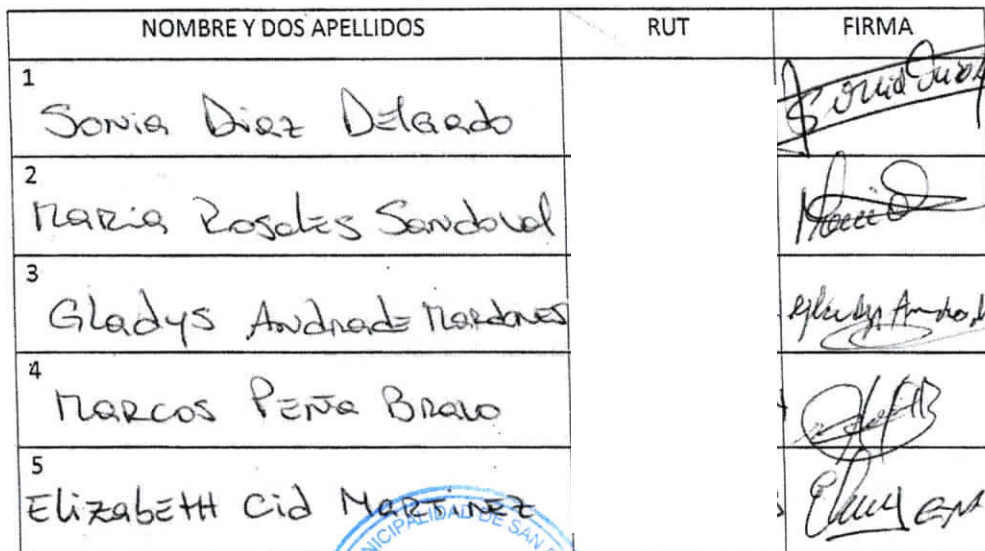 NOMBRE Y DOS APELLIDOS RUT FIRMA
1
Sonia Diaz Delgado
2
Maria Rosales Sandoval
3
Gladys Andrade Mardones
Gladys Andrade
4
Marcos Peña Bravo
5
Elizabeth Cid Martinez